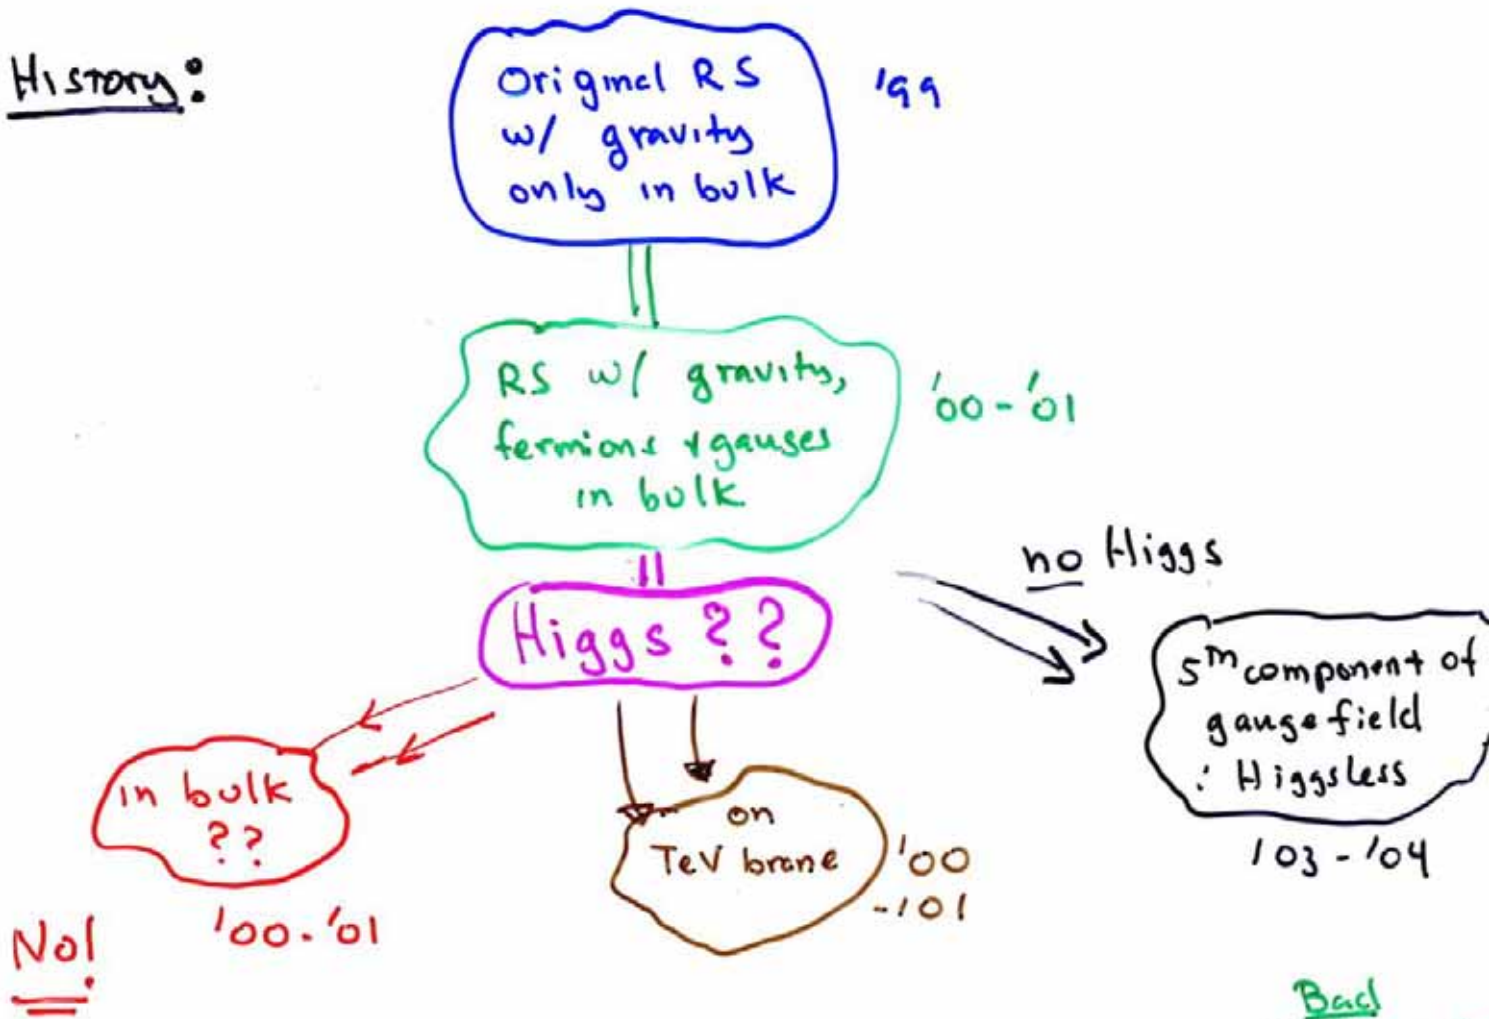 History:
Original RS
w/ gravity
only in bulk
'99
RS w/ gravity,
fermions & gauges
in bulk
'00-'01
Higgs ??
no Higgs
5th component of
gauge field
∴ Higgsless
'03-'04
in bulk
??
'00-'01
No!
on
TeV brane
'00
-'01
Bad